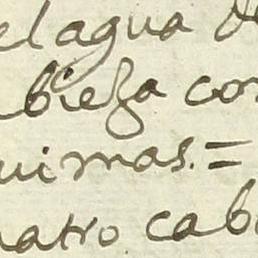 el agua de
bieza con
uimas. =
uatro cab